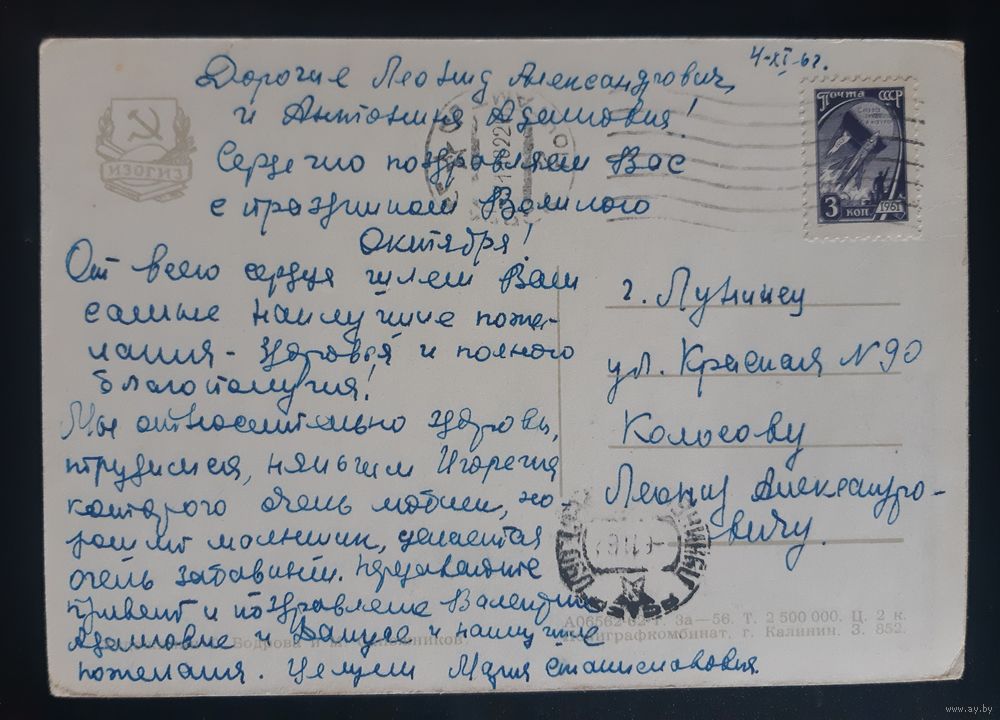 4-XI-62.
Дорогие Леонид Александрович,
и Антонина Адамовна!
Сердечно поздравляем Вас
с праздником Великого
Октября!
От всего сердца шлем Вам
самые наилучшие поже-
лания - здоровья и полного
благополучия!
Мы относительно здоровы,
трудимся, няньчим Игоречка
которого очень любим, хо
роший мальчик, делается
очень забавным. Передавайте
привет и поздравления Валентине
Адамовне и и наилучшие
пожелания. Целуем Мария Станиславовна.
ИЗОГИЗ
ПОЧТА СССР
3 КОП 1961
г. Лунинец
ул. Красная N 90
Колосову
Леониду Александро-
вичу.
А06562 62 г. За—56. Т. 2 500 000. Ц. 2 к.
Полиграфкомбинат, г. Калинин. З. 852.
Бодрова и
www.ay.by